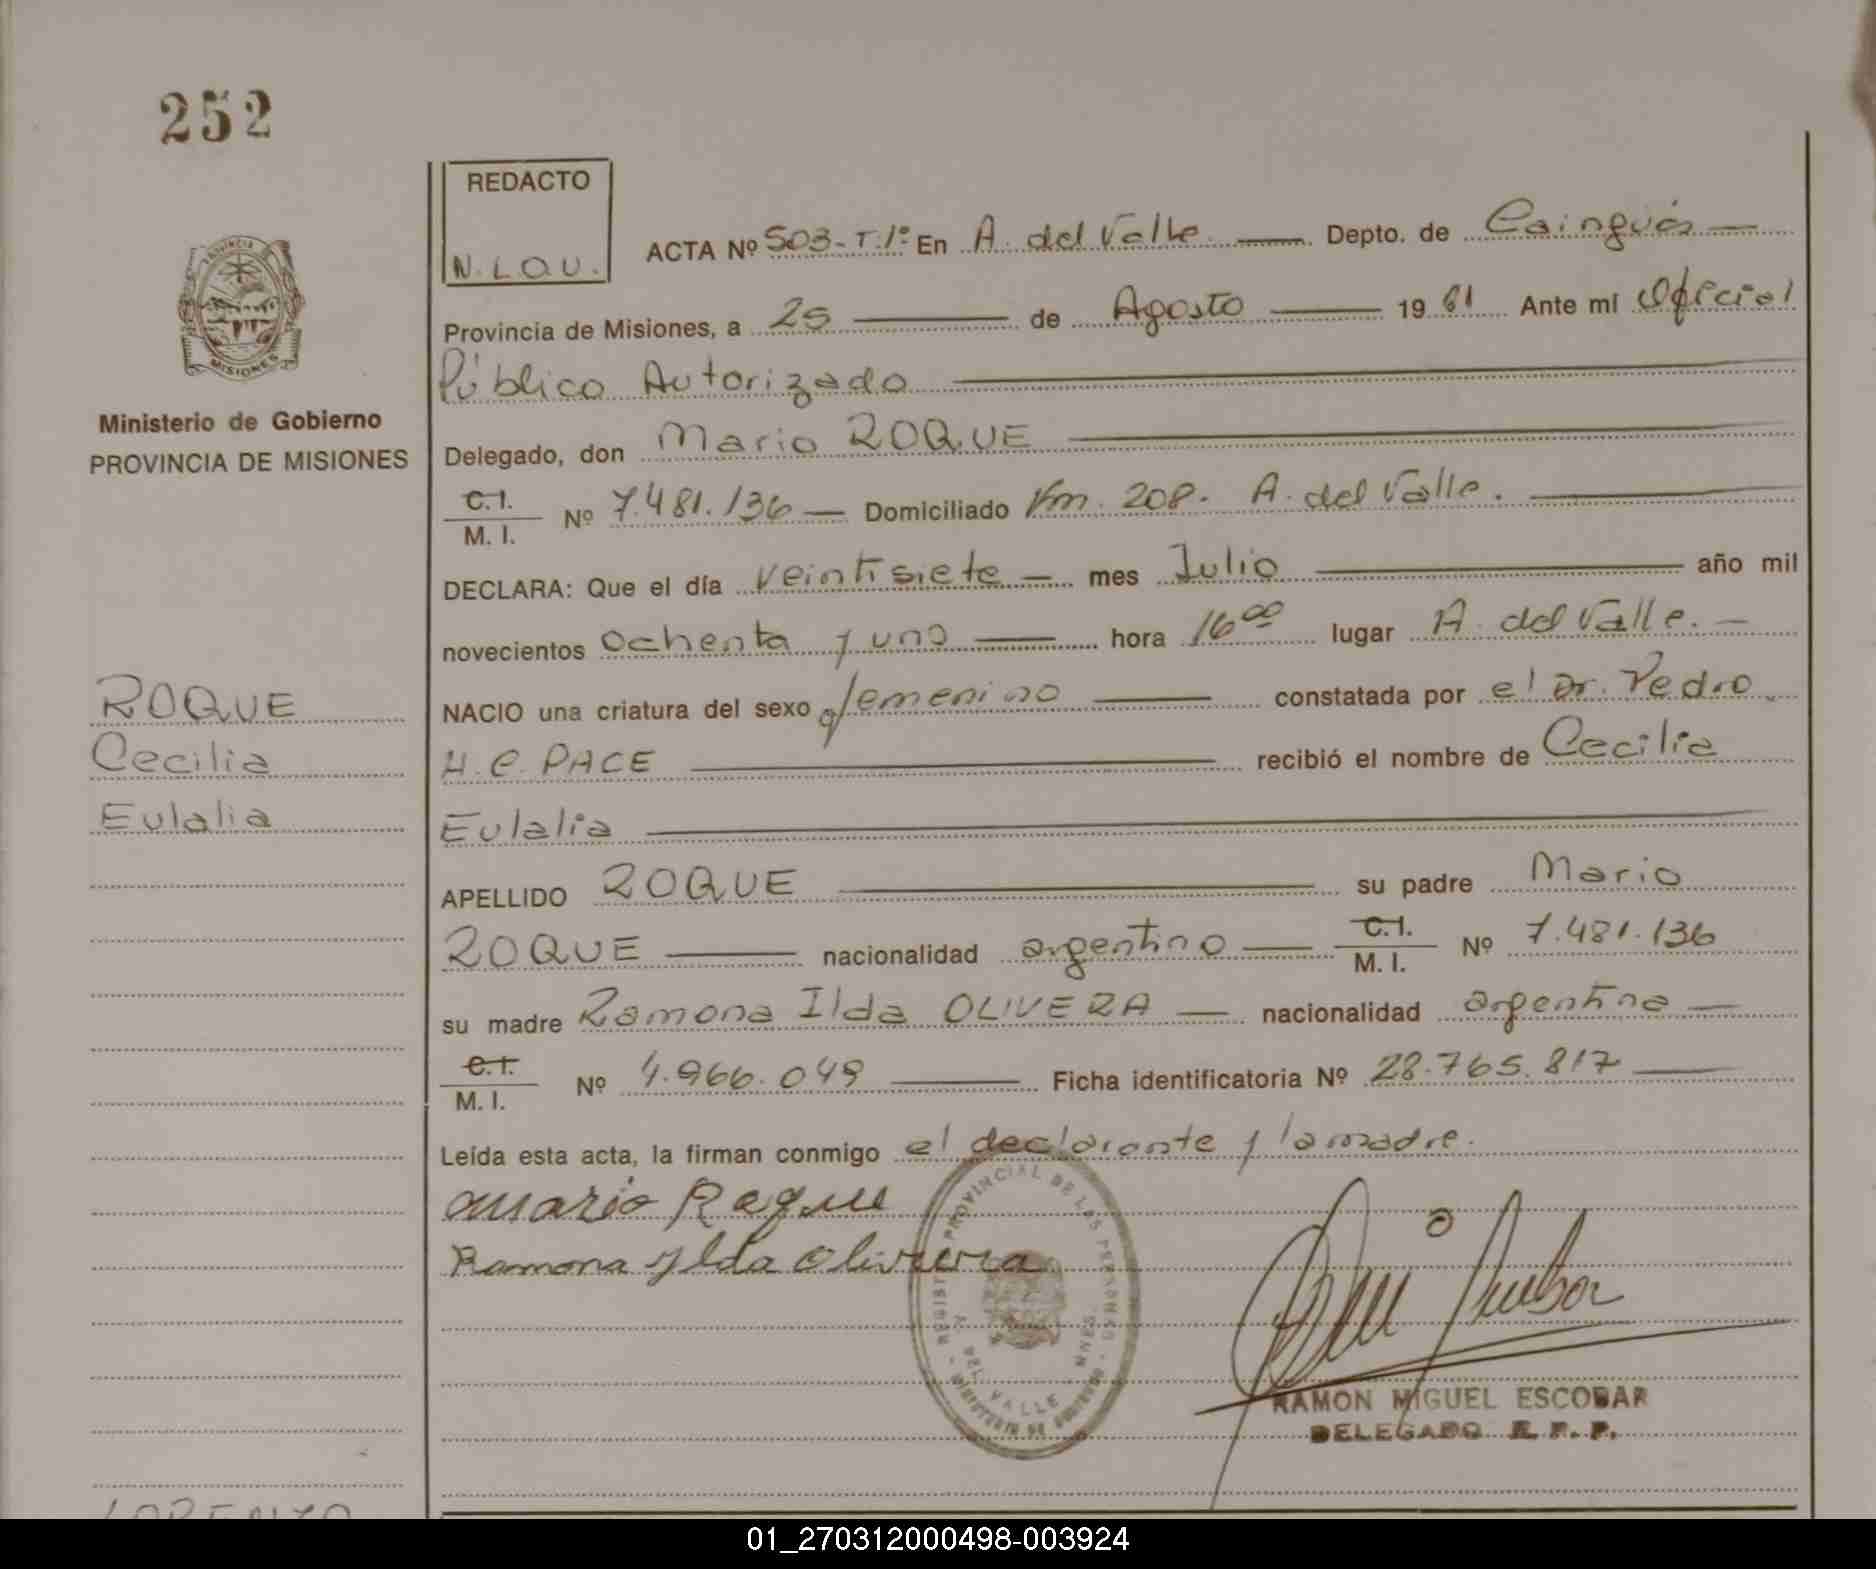 252
REDACTO
N.L.O.U.
ACTA Nº 503-T.1º En A. del Valle Depto. de Cainguás
Provincia de Misiones, a 25 de Agosto 19 81 Ante mí Oficial
Público Autorizado
Delegado, don Mario ROQUE
C.I. M. I. Nº 7.481.136 Domiciliado Km. 208. A. del Valle.
DECLARA: Que el día veintisiete mes Julio año mil
novecientos ochenta y uno hora 16 00 lugar A. del Valle.
NACIO una criatura del sexo femenino constatada por el Dr. Pedro
H. C. PACE recibió el nombre de Cecilia
Eulalia
APELLIDO ROQUE su padre Mario
ROQUE nacionalidad argentino C.I. M. I. Nº 7.481.136
su madre Ramona Ilda OLIVERA nacionalidad argentina
C.I. M. I. Nº 4.966.049 Ficha identificatoria Nº 28.765.817
Leída esta acta, la firman conmigo el declarante y la madre.
Mario Roque
Ramona Ylda Olivera
REGISTRO PROVINCIAL DE LAS PERSONAS
MINISTERIO DE GOBIERNO
A. DEL VALLE MNES.
RAMON MIGUEL ESCOBAR
DELEGADO R. P. P.
PROVINCIA
MISIONES
Ministerio de Gobierno
PROVINCIA DE MISIONES
ROQUE
Cecilia
Eulalia
LORENZO
01_270312000498-003924